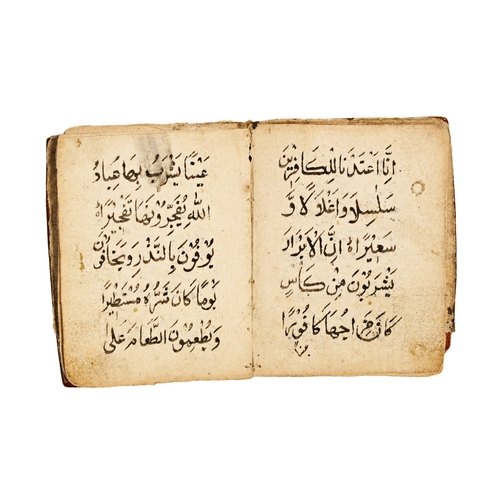 اِنَّا اَعْتَدْنَا لِلْكَافِرِينَ
سَلَاسِلَا وَاَغْلَالًا وَّ
سَعِيْرًا اِنَّ الْاَبْرَارَ
يَشْرَبُوْنَ مِنْ كَاْسٍ
كَانَ مِزَاجُهَا كَافُوْرًا
عَيْنًا يَشْرَبُ بِهَا عِبَادُ
اللهِ يُفَجِّرُوْنَهَا تَفْجِيْرًا
يُوْفُوْنَ بِالنَّذْرِ وَيَخَافُوْنَ
يَوْمًا كَانَ شَرُّهُ مُسْتَطِيْرًا
وَيُطْعِمُوْنَ الطَّعَامَ عَلٰى